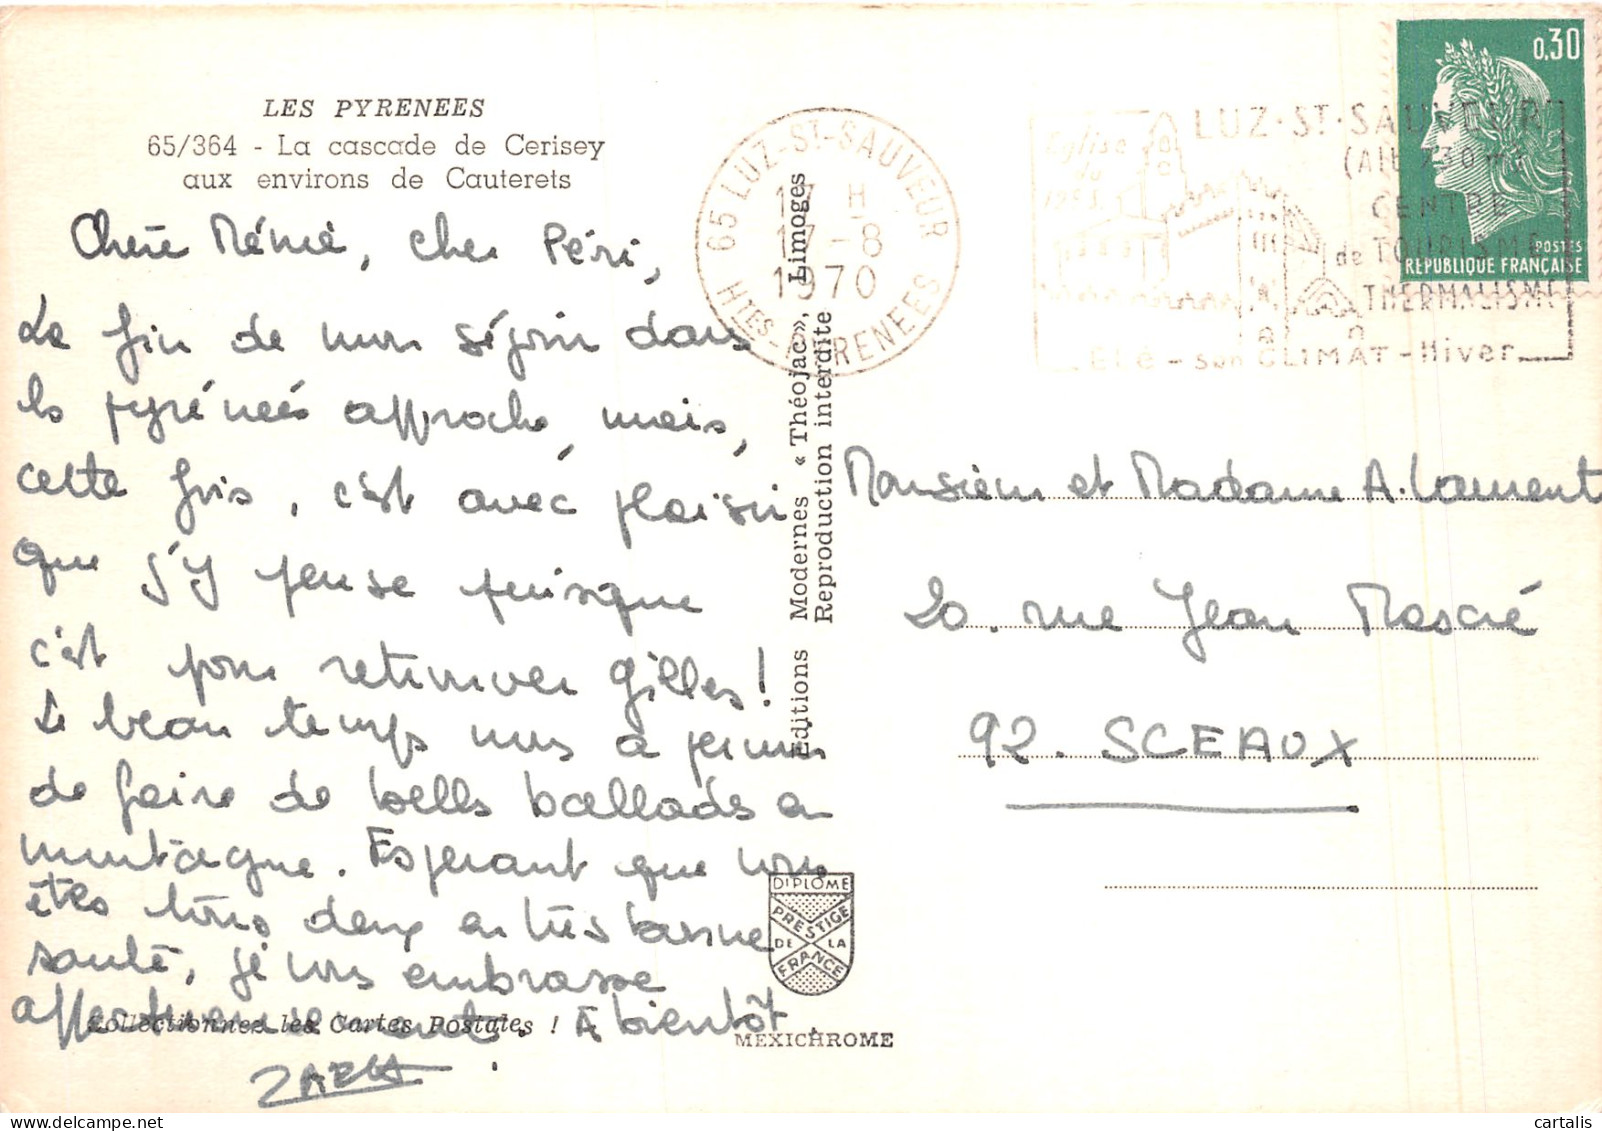 LES PYRENEES
65/364 - La cascade de Cerisey
aux environs de Cauterets
Chère Mémé, cher Péri,
La fin de mon séjour dans
les pyrénées approche, mais,
cette fois, c'est avec plaisir
que j'y pense puisque
c'est pour retrouver Gilles !
Le beau temps nous a permis
de faire de belles ballades en
montagne. Espérant que vous
êtes tous deux en très bonne
santé, je vous embrasse
affectueusement. A bientôt.
Collectionnez les Cartes Postales !
65 LUZ-ST-SAUVEUR
17 H
17-8
1970
HTES-PYRENEES
Editions Modernes « Théojac», Limoges
Reproduction interdite
Eglise
du
LUZ-ST-SAUVEUR
CENTRE
de TOURISME
THERMALISME
Eté - son CLIMAT - Hiver
0,30
POSTES
REPUBLIQUE FRANÇAISE
Monsieur et Madame A. Laurent
20. rue Jean Mascré
92. SCEAUX
DIPLOME
PRESTIGE
DE LA
FRANCE
MEXICHROME
cartalis
www.delcampe.net